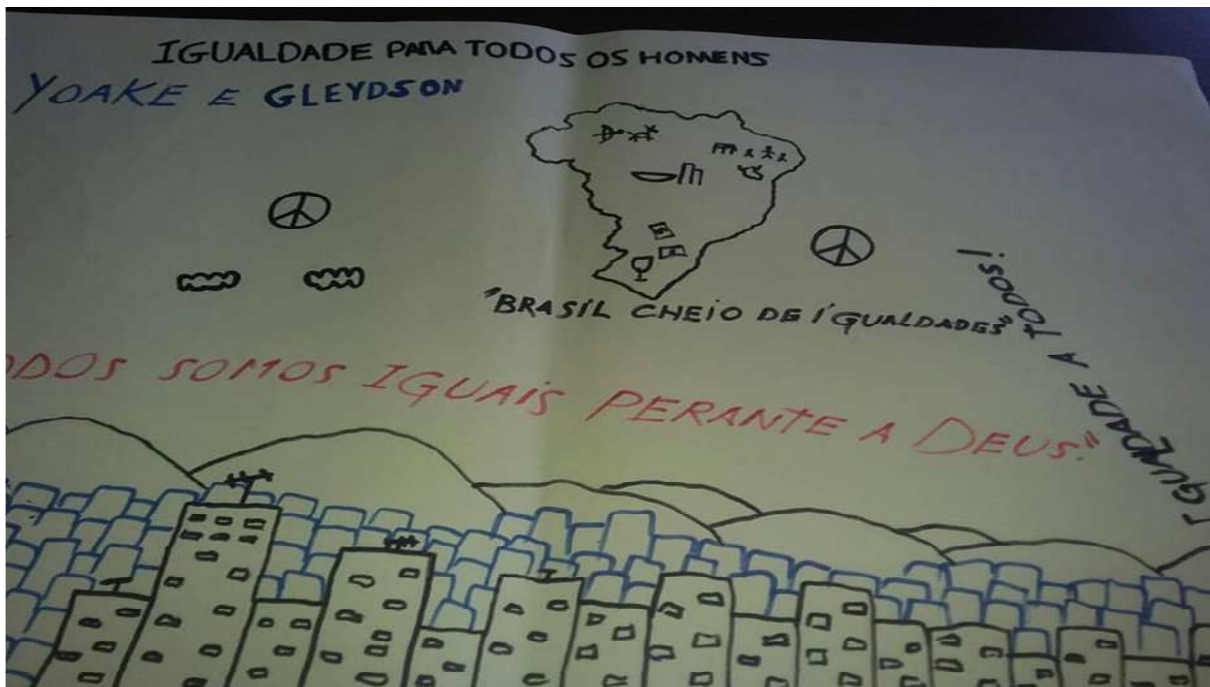 IGUALDADE PARA TODOS OS HOMENS
YOAKE E GLEYDSON
"BRASIL CHEIO DE IGUALDADES"
ODOS SOMOS IGUAIS PERANTE A DEUS."
IGUALDADE A TODOS!